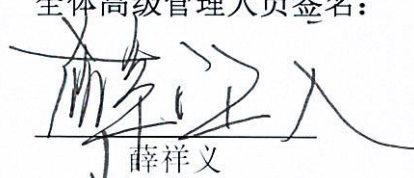 全体高级管理人员签名：
薛祥义
薛祥义